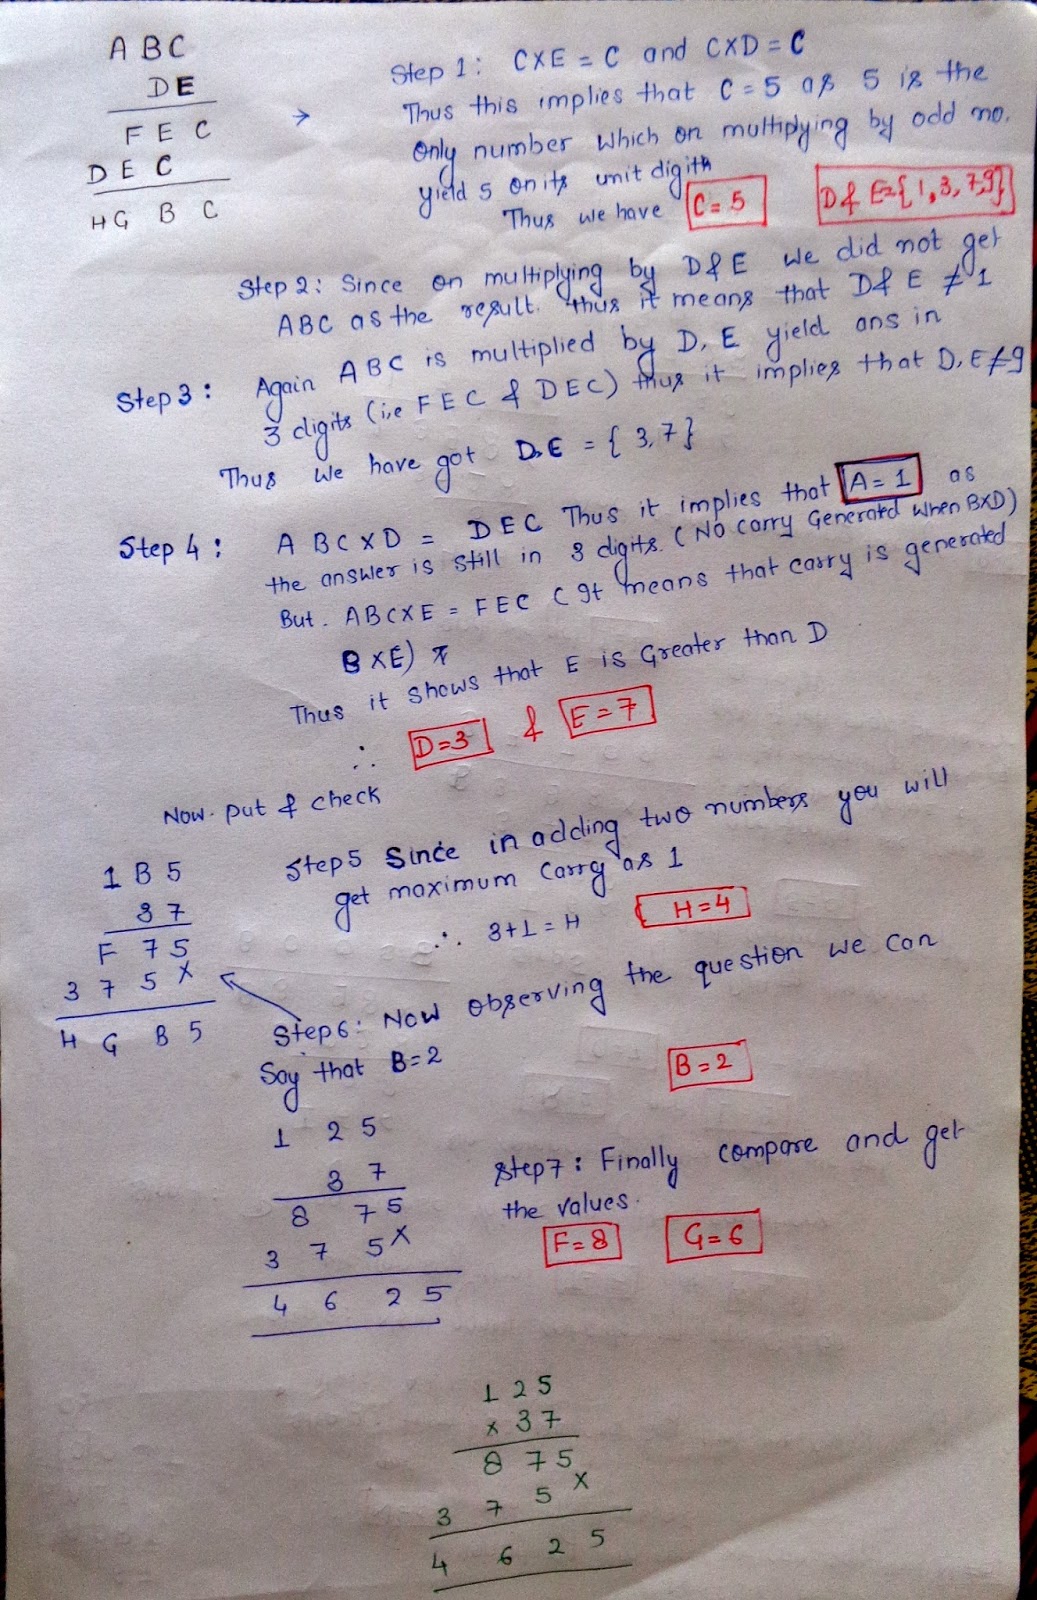 A B C
D E
F E C
D E C
H G B C
→
Step 1: C X E = C and C X D = C
Thus this implies that C = 5 as 5 is the
only number which on multiplying by odd no.
yield 5 on its unit digith
Thus we have C = 5 D & E = { 1, 3, 7, 9 }
Step 2: Since on multiplying by D & E we did not get
ABC as the result. Thus it means that D & E ≠ 1
Step 3: Again ABC is multiplied by D, E yield ans in
3 digits (i.e FEC & DEC) thus it implies that D, E ≠ 9
Thus we have got D, E = { 3, 7 }
Step 4: A B C X D = D E C Thus it implies that A = 1 as
the answer is still in 3 digits. (No carry Generated when BXD)
But. ABCXE = FEC ( It means that carry is generated
B X E)
Thus it shows that E is Greater than D
∴ D = 3 & E = 7
Now. put & check
1 B 5
3 7
F 7 5
3 7 5 X
H G B 5
Step 5 Since in adding two numbers you will
get maximum carry as 1
∴ 3 + 1 = H H = 4
Step 6: Now observing the question we can
Say that B = 2 B = 2
1 2 5
3 7
8 7 5
3 7 5 X
4 6 2 5
Step 7: Finally compare and get
the values.
F = 8 G = 6
1 2 5
x 3 7
8 7 5
3 7 5 X
4 6 2 5